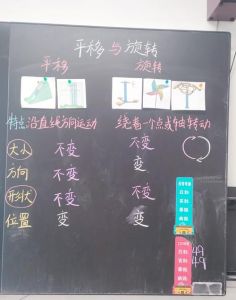 平移与旋转
平移 旋转
特点 沿直线方向运动 绕着一个点或轴转动
大小 不变 不变
方向 不变 变
形状 不变 不变
位置 变 变
49
49